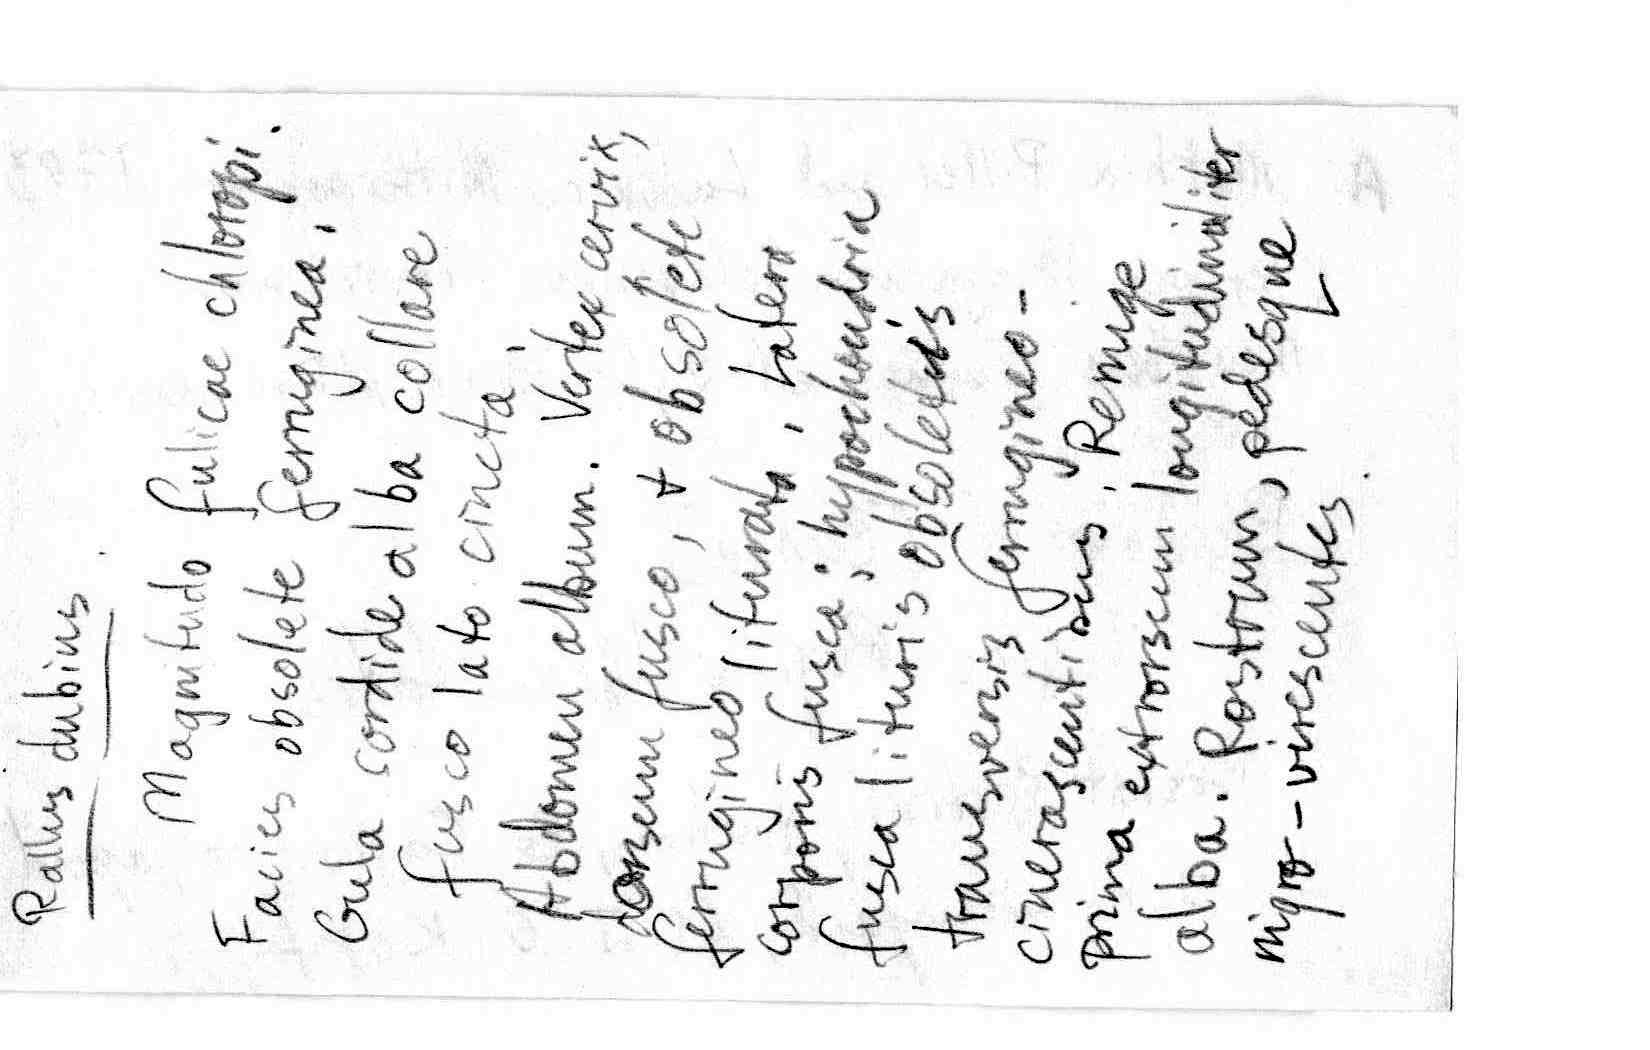 Rallus dubius
Magnitudo fulicae chloropi.
Facies obsolete ferruginea,
Gula sordide alba collare
fusco lato cincta,
Abdomen album. Vertex cervix,
dorsum fusco, & obsolete
ferrugineo liturata, latera
corporis fusca; hypochondria
fusca lituris obsoletis
transversis ferrugineo-
cinerascentibus, Remige
prima extrorsum longitudinaliter
alba. Rostrum, pedesque
nigro-virescentes.